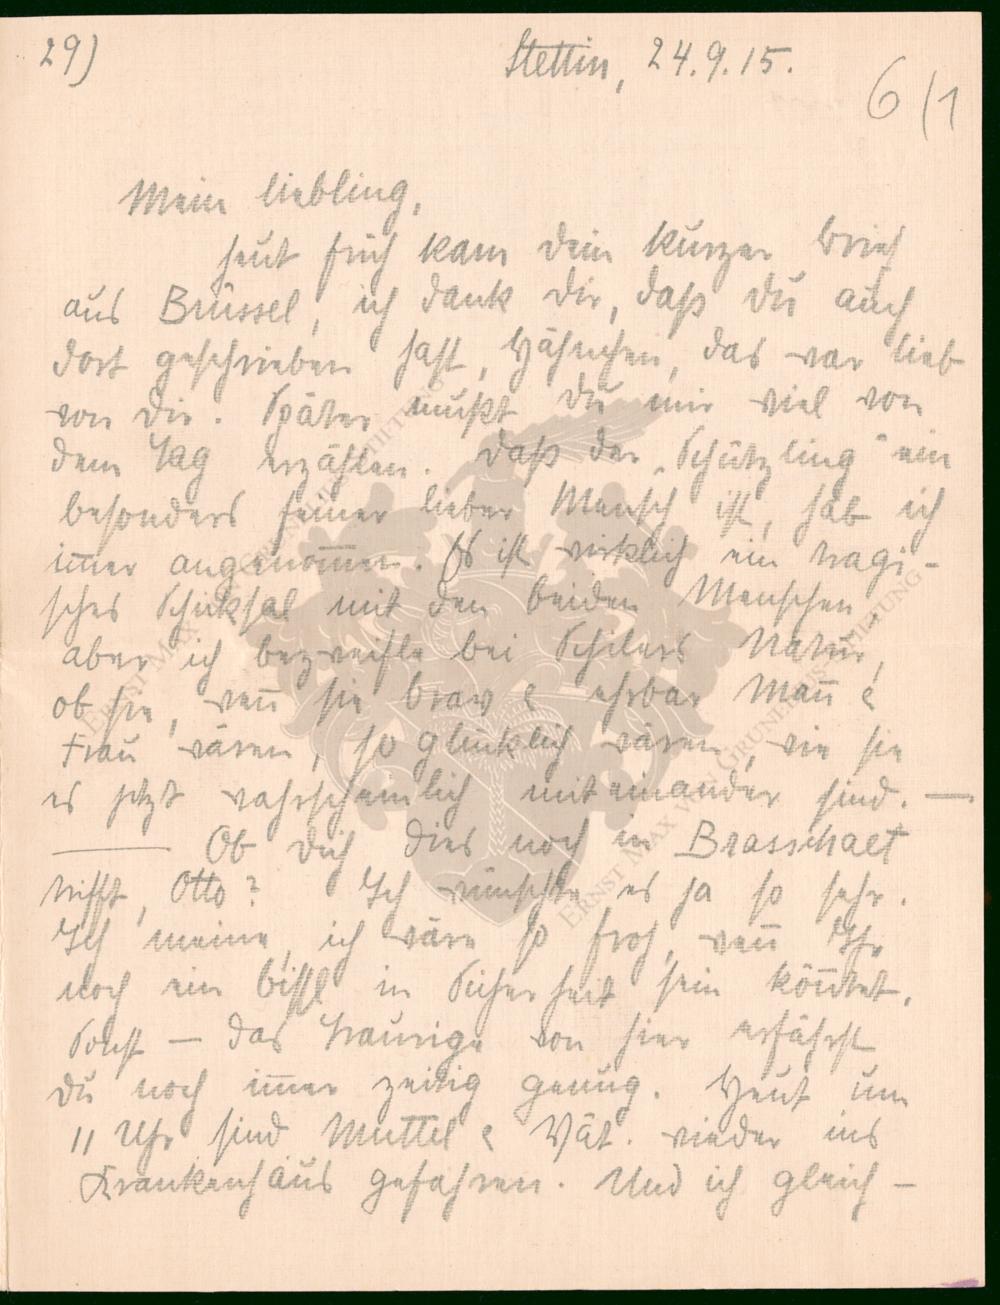 29)
Stettin, 24.9.15.
6/1
Mein liebling,
heut früh kam dein kurzer brief
aus Brüssel, ich dank dir, daß du auch
dort geschrieben hast, Hähnchen, das war lieb
von dir. Später mußt du mir viel von
dem Tag erzählen. daß der „Schützling" ein
besonders feiner lieber Mensch ist, hab ich
im̅er angenom̅en. Es ist wirklich ein tragi-
sches Schiksal mit den beiden Menschen
aber ich bezweifle bei Natur,
ob sie, wen̅ sie brav & ehrbar Man̅ &
Frau wären, so glücklich wären, wie sie
es jetzt wahrscheinlich miteinander sind. —
Ob dich dies noch in Brasschaet
trifft, Otto? Ich wünschte es ja so sehr.
Ich meine, ich wäre so froh, wen̅ Ihr
noch ein bissl in Sicherheit sein kön̅tet.
Sonst — das Traurige von hier erfährst
du noch im̅er zeitig genug. Heut um
11 Uhr sind Muttel & Vat. wieder ins
Krankenhaus gefahren. Und ich gleich-
ERNST MAX VON GRUNELIUS-STIFTUNG
ERNST MAX VON GRUNELIUS-STIFTUNG